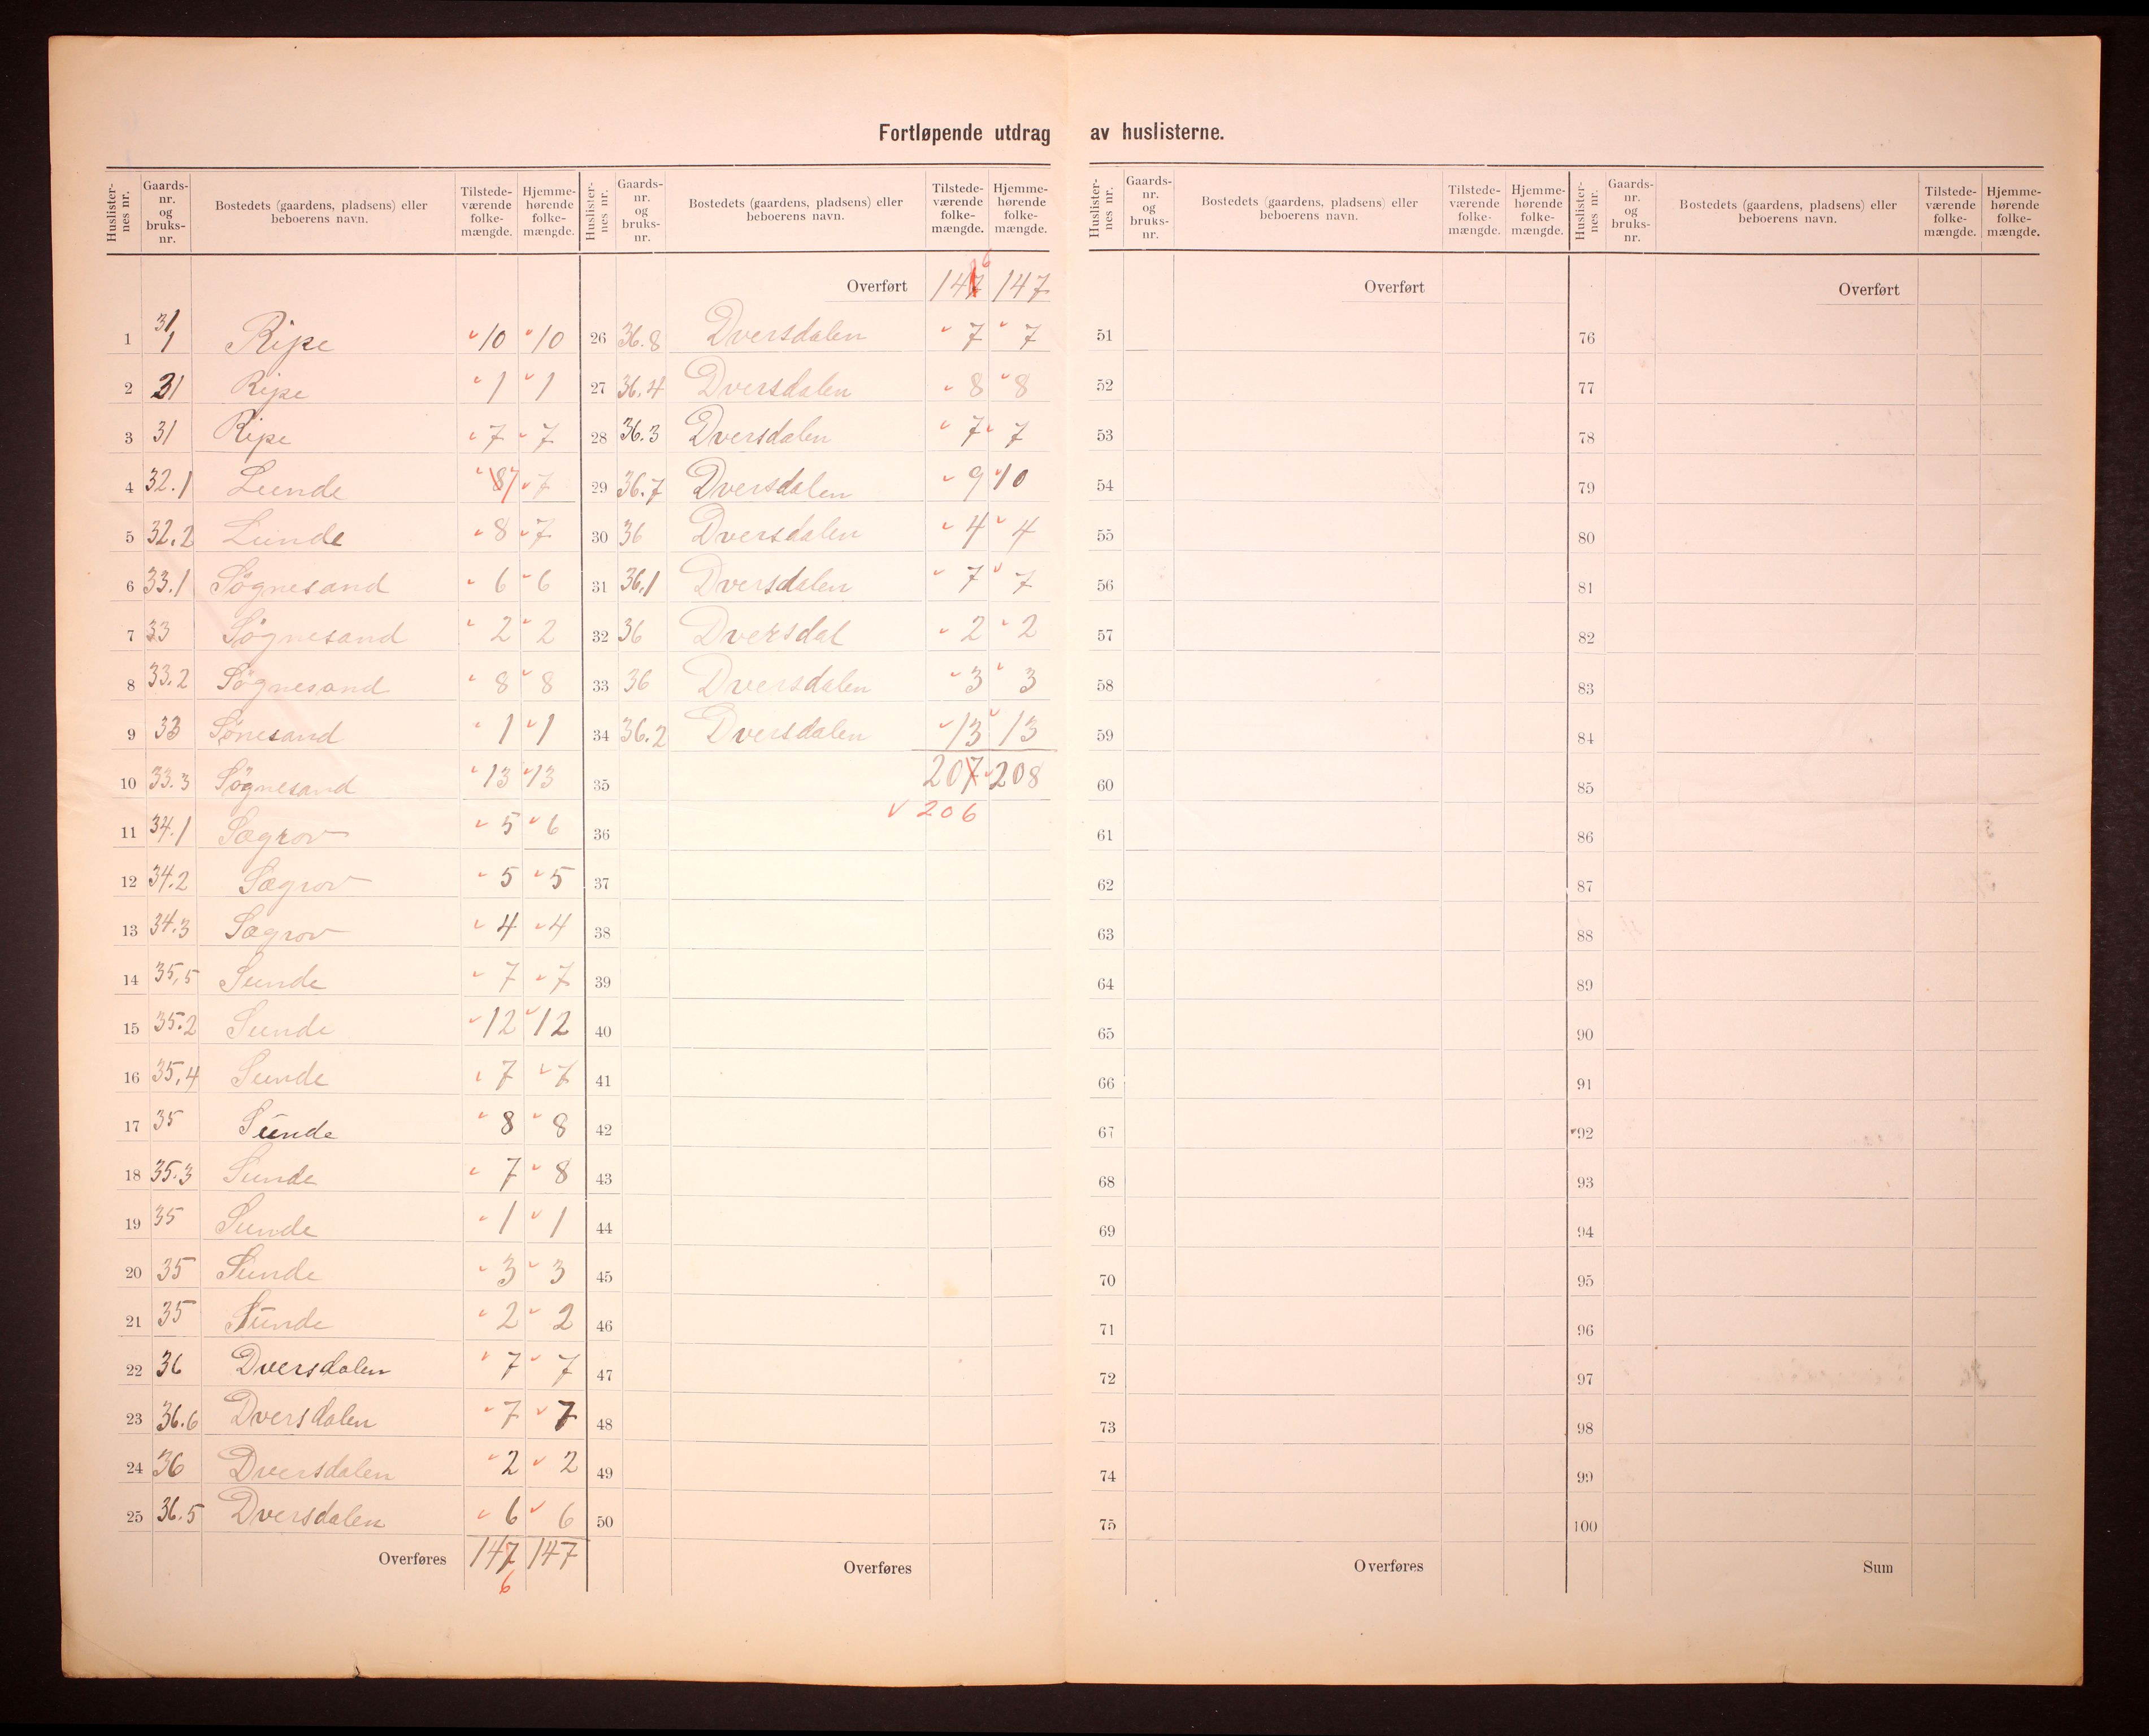 Fortløpende utdrag av huslisterne.
Huslisternes nr. Gaards-nr. og bruks-nr. Bostedets (gaardens, pladsens) eller beboerens navn. Tilstede-værende folke-mængde. Hjemme-hørende folke-mængde.
1 31 1 Ripe 10 10
2 31 Ripe 1 1
3 31 Ripe 7 7
4 32.1 Lunde 8 7 7
5 32.2 Lunde 8 7
6 33.1 Søgnesand 6 6
7 33 Søgnesand 2 2
8 33.2 Søgnesand 8 8
9 33 Sønesand 1 1
10 33.3 Søgnesand 13 13
11 34.1 Sægrov 5 6
12 34.2 Sægrov 5 5
13 34.3 Sægrov 4 4
14 35,5 Sunde 7 7
15 35.2 Sunde 12 12
16 35,4 Sunde 7 7
17 35 Sunde 8 8
18 35.3 Sunde 7 8
19 35 Sunde 1 1
20 35 Sunde 3 3
21 35 Sunde 2 2
22 36 Dversdalen 7 7
23 36.6 Dversdalen 7 7
24 36 Dversdalen 2 2
25 36.5 Dversdalen 6 6
Overføres 147 147
6
Huslisternes nr. Gaards-nr. og bruks-nr. Bostedets (gaardens, pladsens) eller beboerens navn. Tilstede-værende folke-mængde. Hjemme-hørende folke-mængde.
6
Overført 147 147
26 36.8 Dversdalen 7 7
27 36.4 Dversdalen 8 8
28 36.3 Dversdalen 7 7
29 36.7 Dversdalen 9 10
30 36 Dversdalen 4 4
31 36,1 Dversdalen 7 7
32 36 Dversdal 2 2
33 36 Dversdalen 3 3
34 36.2 Dversdalen 13 13
35 207 208
206
36
37
38
39
40
41
42
43
44
45
46
47
48
49
50
Overføres
Huslisternes nr. Gaards-nr. og bruks-nr. Bostedets (gaardens, pladsens) eller beboerens navn. Tilstede-værende folke-mængde. Hjemme-hørende folke-mængde.
Overført
51
52
53
54
55
56
57
58
59
60
61
62
63
64
65
66
67
68
69
70
71
72
73
74
75
Overføres
Huslisternes nr. Gaards-nr. og bruks-nr. Bostedets (gaardens, pladsens) eller beboerens navn. Tilstede-værende folke-mængde. Hjemme-hørende folke-mængde.
Overført
76
77
78
79
80
81
82
83
84
85
86
87
88
89
90
91
92
93
94
95
96
97
98
99
100
Sum